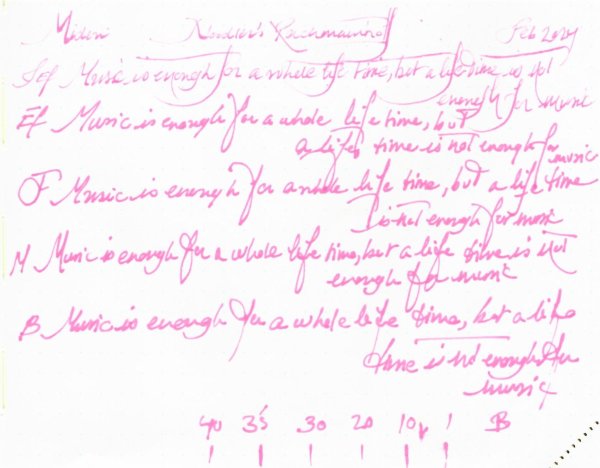 Midori Noodler's Rachmaninoff Feb 2024
Sef Music is enough for a whole life time, but a life time is not
enough for music
Ef Music is enough for a whole life time, but
a life time is not enough for
music
F Music is enough for a whole life time, but a life time
is not enough for music
M Music is enough for a whole life time, but a life time is not
enough for music
B Music is enough for a whole life time, but a life
time is not enough for
music
40 35 30 20 10 1 B